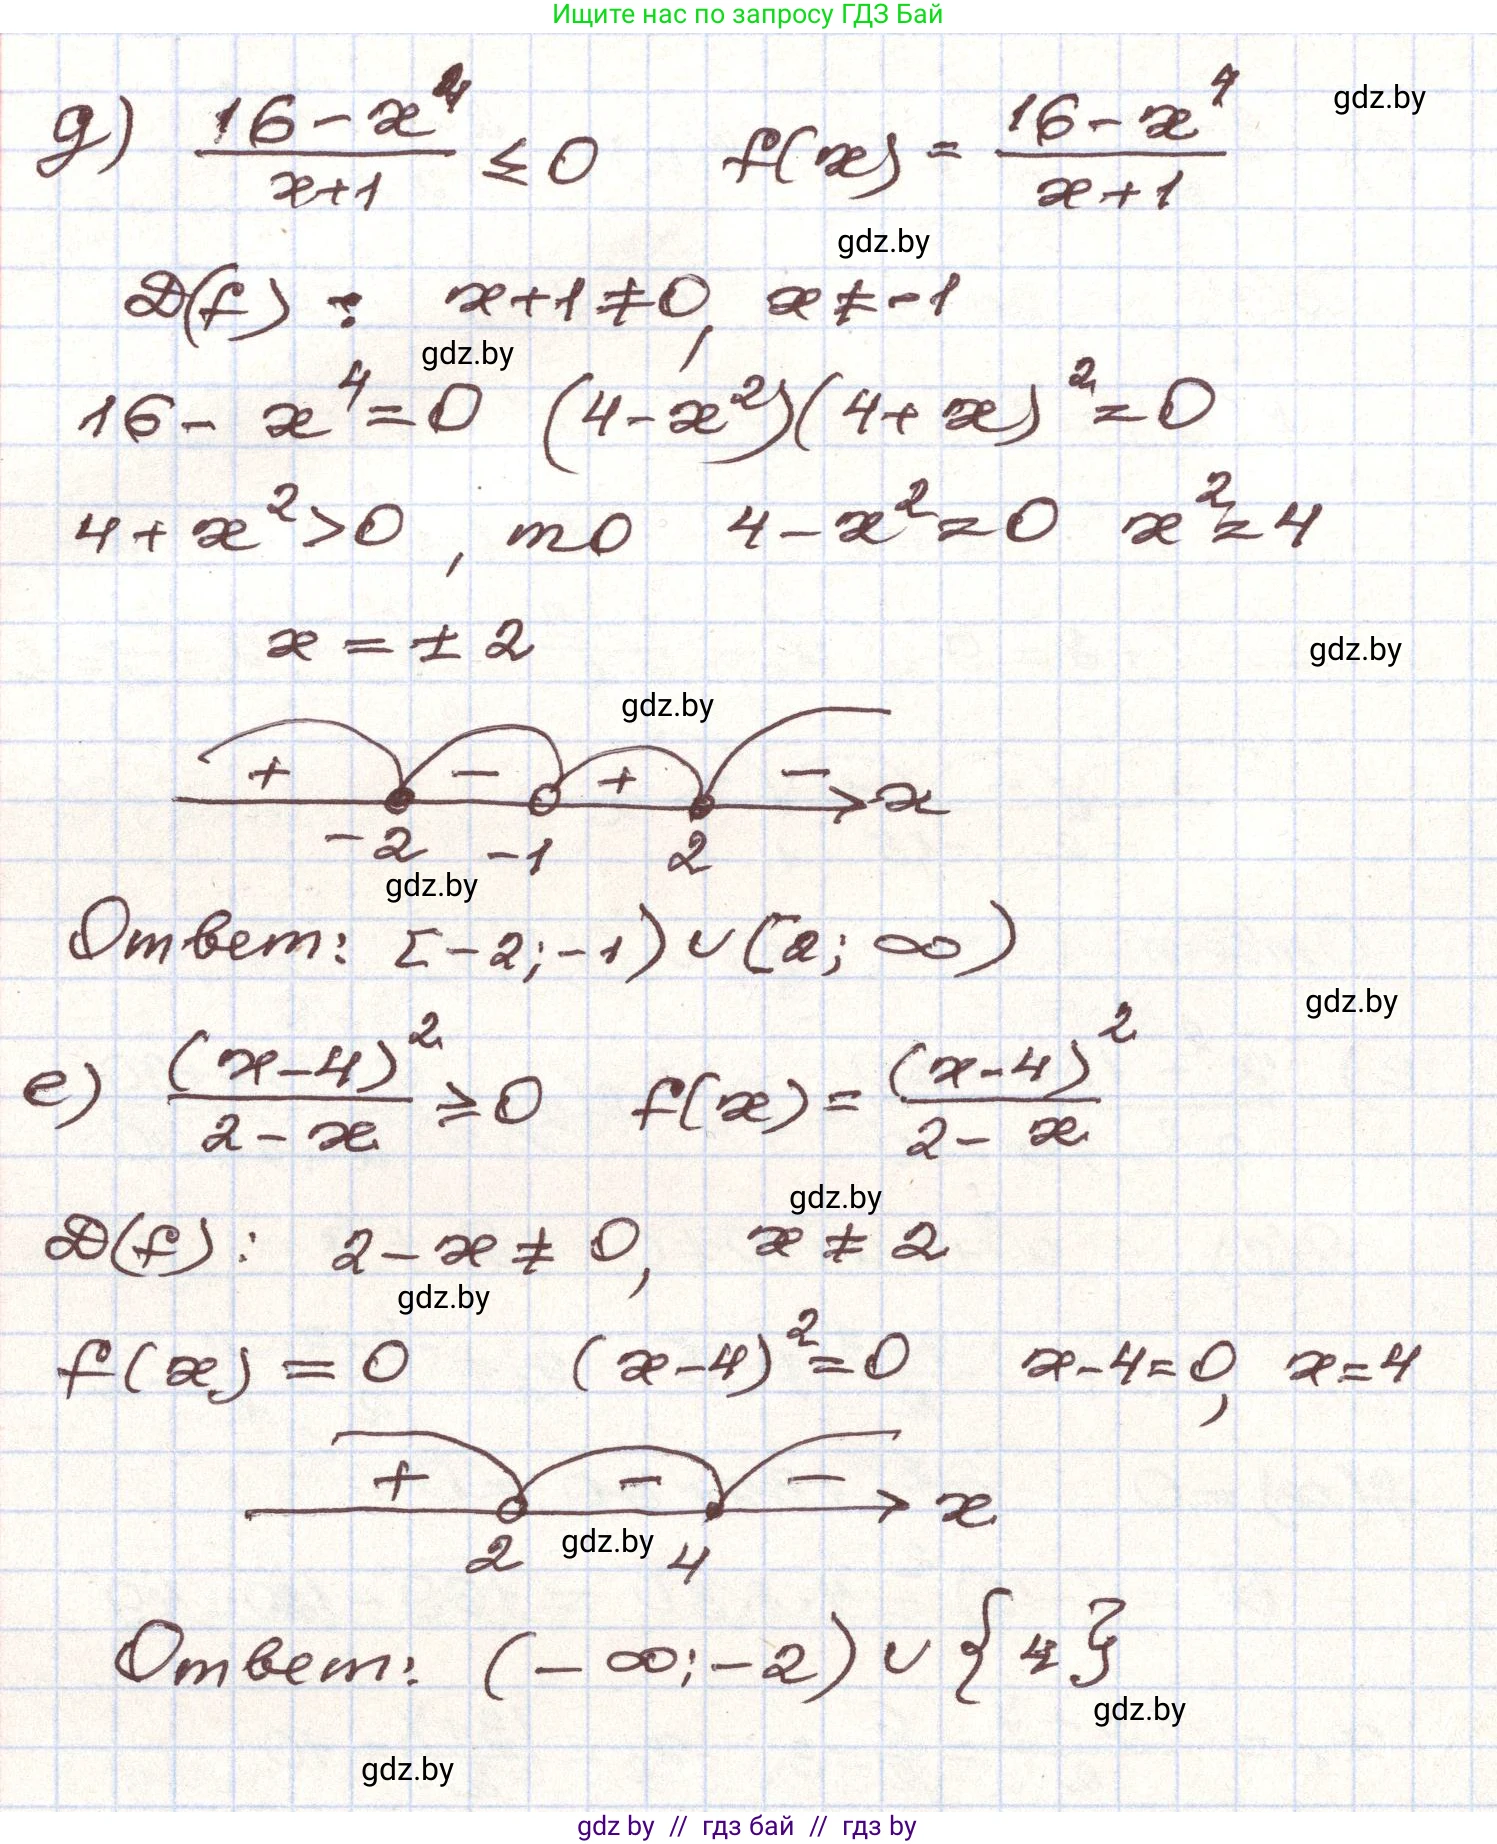 Ищите нас по запросу ГДЗ Бай
д) (16-x⁴)/(x+1) ≤ 0 f(x) = (16-x⁴)/(x+1) gdz.by
gdz.by
D(f): x+1≠0, x≠-1
gdz.by
16-x⁴=0 (4-x²)(4+x)²=0
4+x²>0, то 4-x²=0 x²=4
x=±2 gdz.by
gdz.by
+ - + - x
-2 -1 2
gdz.by
Ответ: [-2;-1)∪[2;∞)
gdz.by
е) (x-4)²/(2-x) ≥ 0 f(x)=(x-4)²/(2-x)
gdz.by
D(f): 2-x≠0, x≠2
gdz.by
f(x)=0 (x-4)²=0 x-4=0, x=4
+ - - x
2 gdz.by 4
Ответ: (-∞;-2)∪{4}
gdz.by
gdz.by
gdz by // гдз бай // гдз by